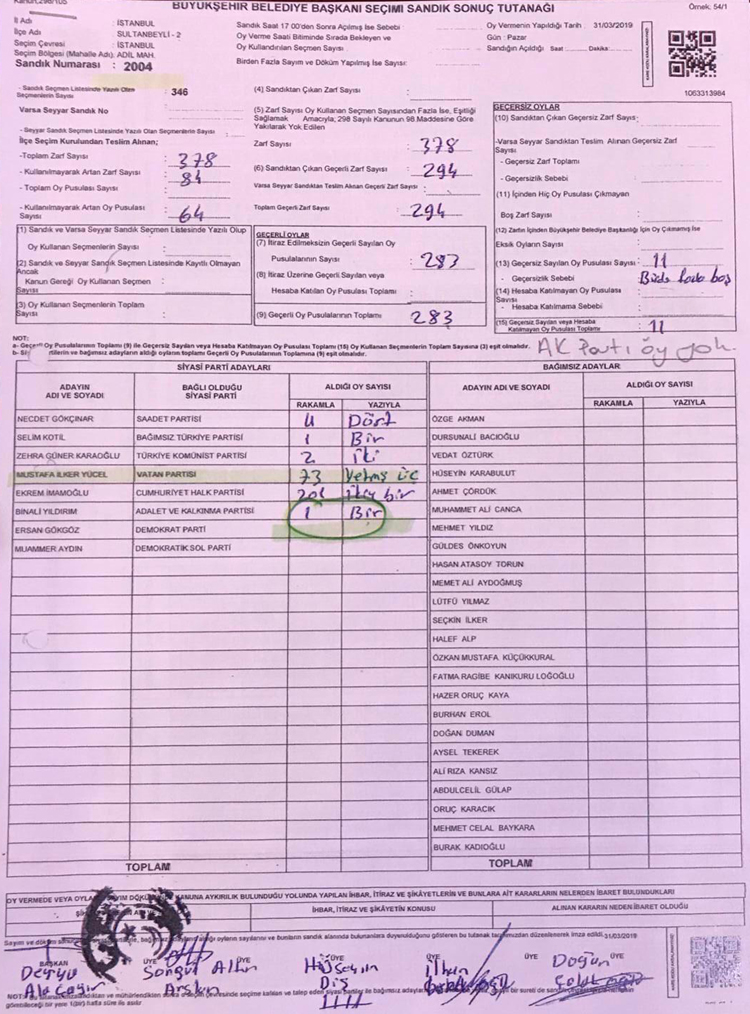 BÜYÜKŞEHİR BELEDİYE BAŞKANI SEÇİMİ SANDIK SONUÇ TUTANAĞI
Örnek: 54/1
İl Adı : İSTANBUL
İlçe Adı : SULTANBEYLİ - 2
Seçim Çevresi : İSTANBUL
Seçim Bölgesi (Mahalle Adı): ADİL MAH.
Sandık Numarası : 2004
Sandık Saat 17:00'den Sonra Açılmış İse Sebebi :
Oy Verme Saati Bitiminde Sırada Bekleyen ve
Oy Kullandırılan Seçmen Sayısı :
Birden Fazla Sayım ve Döküm Yapılmış İse Sayısı:
Oy Vermenin Yapıldığı Tarih : 31/03/2019
Gün : Pazar
Sandığın Açıldığı Saat Dakika:
1063313984
- Sandık Seçmen Listesinde Yazılı Olan Seçmenlerin Sayısı : 346
Varsa Seyyar Sandık No
- Seyyar Sandık Listesinde Yazılı Olan Seçmenlerin Sayısı :
İlçe Seçim Kurulundan Teslim Alınan;
-Toplam Zarf Sayısı : 378
- Kullanılmayarak Artan Zarf Sayısı : 84
- Toplam Oy Pusulası Sayısı :
- Kullanılmayarak Artan Oy Pusulası Sayısı : 64
(1) Sandık ve Varsa Seyyar Sandık Seçmen Listesinde Yazılı Olup
Oy Kullanan Seçmenlerin Sayısı :
(2) Sandık ve Seyyar Sandık Seçmen Listesinde Kayıtlı Olmayan Ancak
Kanun Gereği Oy Kullanan Seçmen Sayısı :
(3) Oy Kullanan Seçmenlerin Toplam Sayısı :
(4) Sandıktan Çıkan Zarf Sayısı :
(5) Zarf Sayısı Oy Kullanan Seçmen Sayısından Fazla İse, Eşitliği
Sağlamak Amacıyla; 298 Sayılı Kanunun 98.Maddesine Göre
Yakılarak Yok Edilen
Zarf Sayısı : 378
(6) Sandıktan Çıkan Geçerli Zarf Sayısı : 294
Varsa Seyyar Sandıktan Teslim Alınan Geçerli Zarf Sayısı :
Toplam Geçerli Zarf Sayısı : 294
GEÇERLİ OYLAR
(7) İtiraz Edilmeksizin Geçerli Sayılan Oy
Pusulalarının Sayısı : 283
(8) İtiraz Üzerine Geçerli Sayılan veya
Hesaba Katılan Oy Pusulası Toplamı :
(9) Geçerli Oy Pusulalarının Toplamı : 283
GEÇERSİZ OYLAR
(10) Sandıktan Çıkan Geçersiz Zarf Sayısı :
-Varsa Seyyar Sandıktan Teslim Alınan Geçersiz Zarf Sayısı :
- Geçersiz Zarf Toplamı :
- Geçersizlik Sebebi :
(11) İçinden Hiç Oy Pusulası Çıkmayan
Boş Zarf Sayısı :
(12) Zarfın İçinden Büyükşehir Belediye Başkanlığı İçin Oy Çıkmamış İse
Eksik Oyların Sayısı :
(13) Geçersiz Sayılan Oy Pusulası Sayısı : 11
- Geçersizlik Sebebi :
(14) Hesaba Katılmayan Oy Pusulası Sayısı :
- Hesaba Katılmama Sebebi :
(15) Geçersiz Sayılan veya Hesaba Katılmayan Oy Pusulası Toplamı : 11
NOT:
a- Geçerli Oy Pusulalarının Toplamı (9) ile Geçersiz Sayılan veya Hesaba Katılmayan Oy Pusulası Toplamı (15) Oy Kullanan Seçmenlerin Toplam Sayısına (3) eşit olmalıdır.
b- partilerin ve bağımsız adayların aldığı oyların toplamı Geçerli Oy Pusulalarının Toplamına (9) eşit olmalıdır.
AK Parti oy yok.
SİYASİ PARTİ ADAYLARI
BAĞIMSIZ ADAYLAR
ADAYIN ADI VE SOYADI BAĞLI OLDUĞU SİYASİ PARTİ ALDIĞI OY SAYISI RAKAMLA YAZIYLA
ADAYIN ADI VE SOYADI ALDIĞI OY SAYISI RAKAMLA YAZIYLA
NECDET GÖKÇINAR SAADET PARTİSİ 4 Dört
SELİM KOTİL BAĞIMSIZ TÜRKİYE PARTİSİ 1 Bir
ZEHRA GÜNER KARAOĞLU TÜRKİYE KOMÜNİST PARTİSİ 2 İki
MUSTAFA İLKER YÜCEL VATAN PARTİSİ 73 Yetmiş üç
EKREM İMAMOĞLU CUMHURİYET HALK PARTİSİ 201 bir
BİNALİ YILDIRIM ADALET VE KALKINMA PARTİSİ 1 Bir
ERSAN GÖKGÖZ DEMOKRAT PARTİ
MUAMMER AYDIN DEMOKRATİK SOL PARTİ
ÖZGE AKMAN
DURSUNALİ BACIOĞLU
VEDAT ÖZTÜRK
HÜSEYİN KARABULUT
AHMET ÇÖRDÜK
MUHAMMET ALİ CANCA
MEHMET YILDIZ
GÜLDES ÖNKOYUN
HASAN ATASOY TORUN
MEMET ALİ AYDOĞMUŞ
LÜTFÜ YILMAZ
SEÇKİN İLKER
HALEF ALP
ÖZKAN MUSTAFA KÜÇÜKKURAL
FATMA RAGİBE KANIKURU LOĞOĞLU
HAZER ORUÇ KAYA
BURHAN EROL
DOĞAN DUMAN
AYSEL TEKEREK
ALİ RIZA KANSIZ
ABDULCELİL GÜLAP
ORUÇ KARACIK
MEHMET CELAL BAYKARA
BURAK KADIOĞLU
TOPLAM
TOPLAM
İHBAR, İTİRAZ VE ŞİKAYETİN KONUSU
ALINAN KARARIN NEDEN İBARET OLDUĞU
BAŞKAN ÜYE ÜYE ÜYE ÜYE ÜYE
Derya Songül Altın Hüseyin İlhan Doğan
Diş